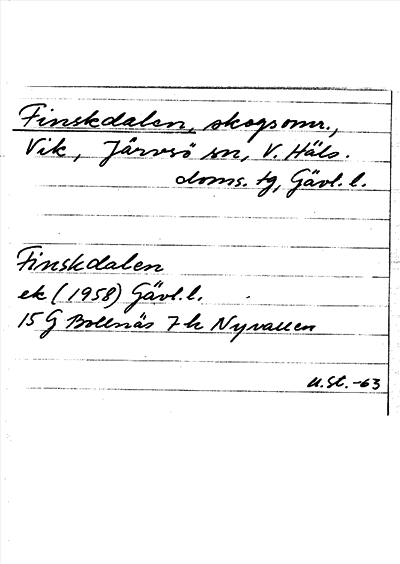 Finskdalen, skogsomr.,
Vik, Järvsö sn, V. Häls.
doms. tg, Gävl. l.
Finskdalen
ek (1958) Gävl. l.
15 G Bollnäs 7 h Nyvallen
U.St. -63